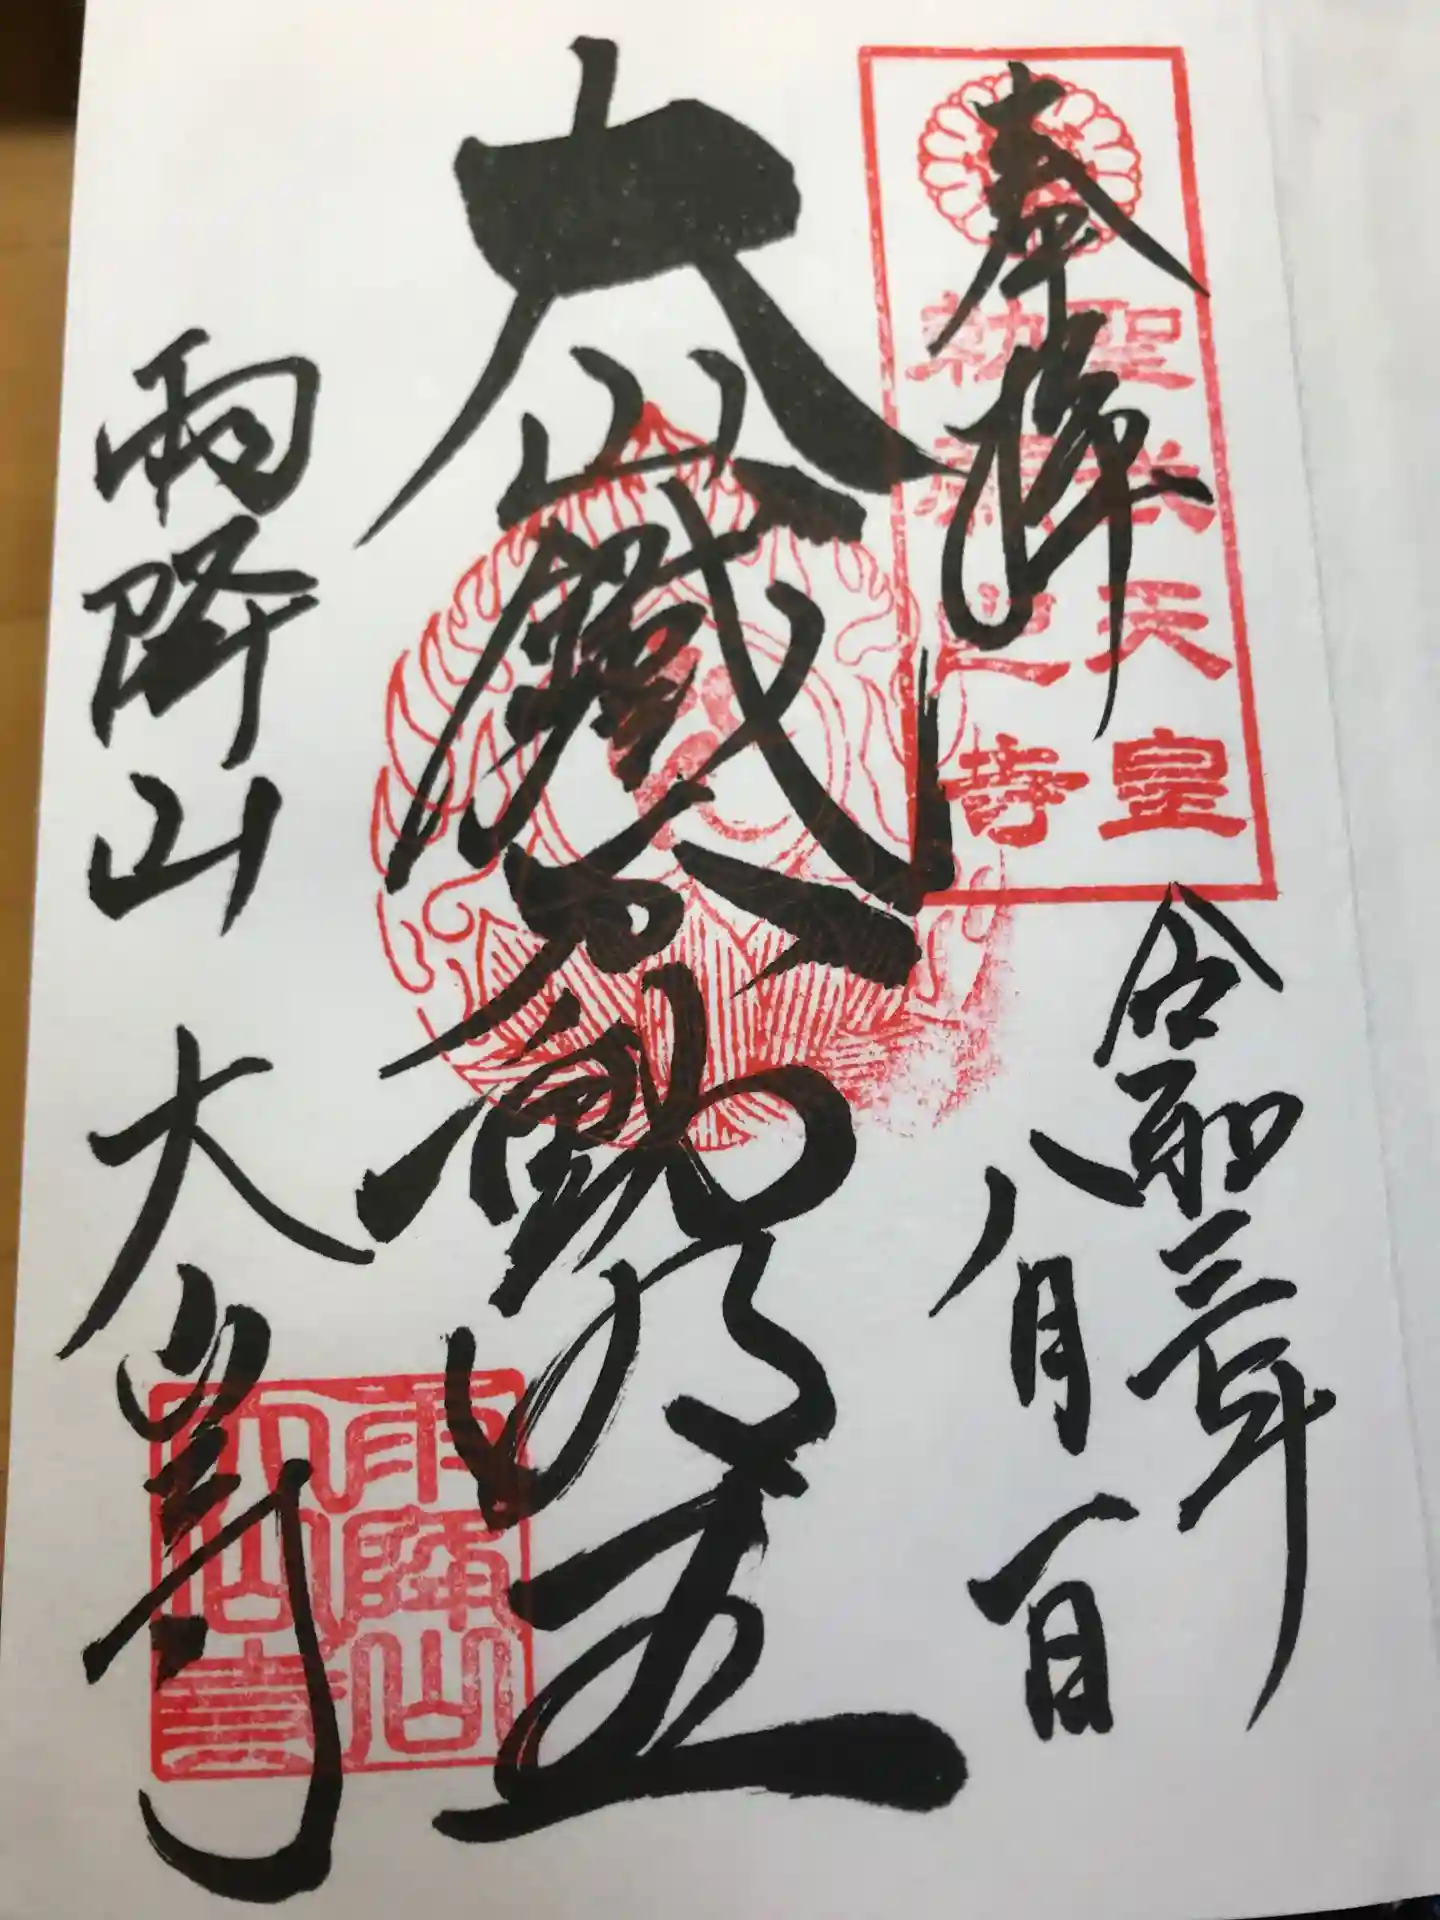 奉拝
聖武天皇
勅願之寺
令和三年
八月一日
大山鐵不動明王
雨降山 大山寺
雨降山
大山寺